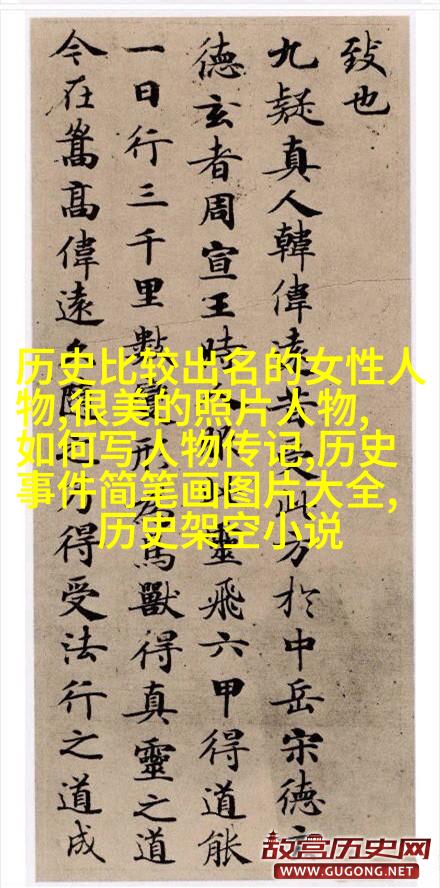 致也
九疑真人韓偉遠昔受此方於中岳宋德玄
德玄者周宣王時人服此靈飛六甲得道能
一日行三千里數變形為鳥獸得真靈之道
今在嵩高偉遠久隨之乃得受法行之道成
历史比较出名的女性人
物,很美的照片人物,
如何写人物传记,历史
事件简笔画图片大全,
历史架空小说
故宫历史网
WWW.GUGONG.NET